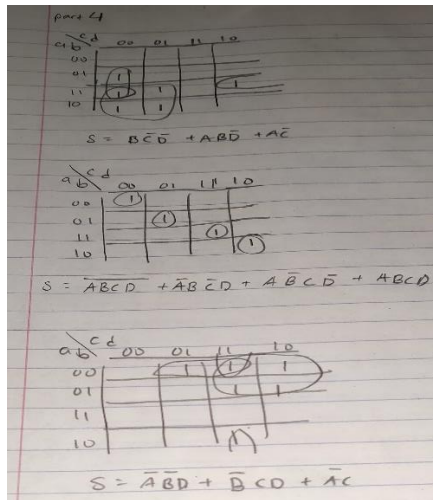 part 4
ab\cd 00 01 11 10
00
01 1
11 1 1 1
10 1 1
S = BC̅D̅ + ABD̅ + AC̅
ab\cd 00 01 11 10
00 1
01 1
11 1
10 1
S = A̅B̅C̅D̅ + A̅BC̅D + AB̅CD̅ + ABCD
ab\cd 00 01 11 10
00 1 1 1
01 1 1
11
10 1
S = A̅B̅D + B̅CD + A̅C